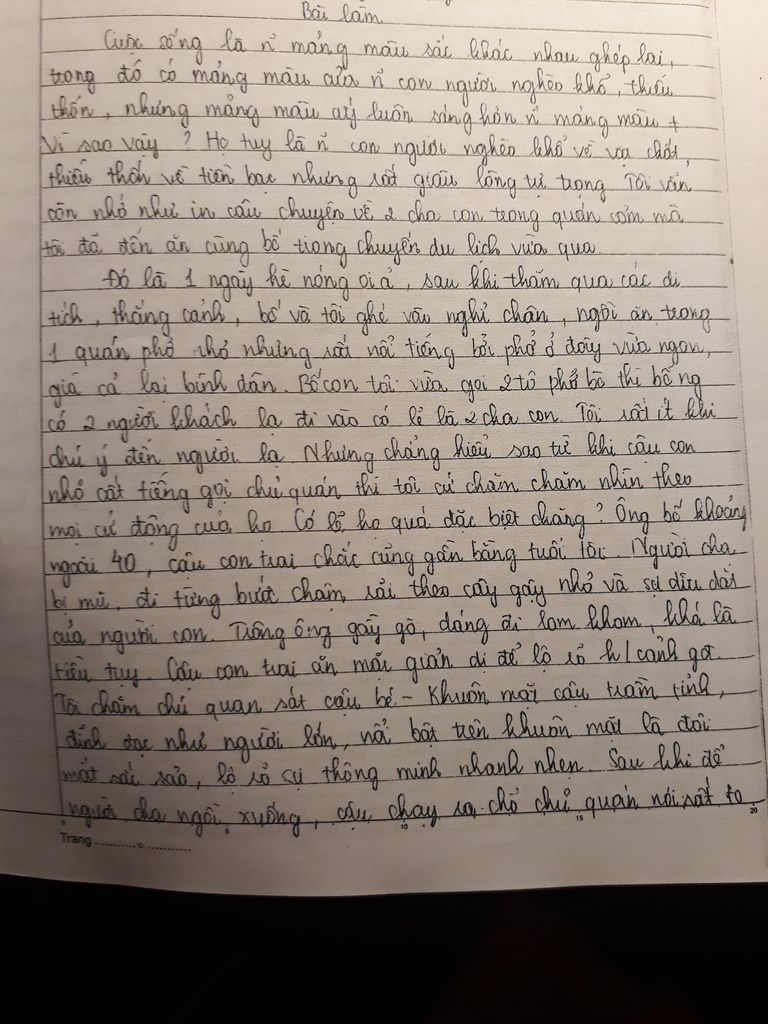 Bài làm
Cuộc sống là n̄ mảng màu sắc khác nhau ghép lại,
trong đó có mảng màu của n̄ con người nghèo khổ, thiếu
thốn, nhưng mảng màu ấy luôn sáng hơn n̄ mảng màu +
Vì sao vậy? Họ tuy là n̄ con người nghèo khổ về vật chất,
thiếu thốn về tiền bạc nhưng rất giàu lòng tự trọng. Tôi vẫn
còn nhớ như in câu chuyện về 2 cha con trong quán cơm mà
tôi đã đến ăn cùng bố trong chuyến du lịch vừa qua.
Đó là 1 ngày hè nóng oi ả, sau khi thăm quan các di
tích, thắng cảnh, bố và tôi ghé vào nghỉ chân, ngồi ăn trong
1 quán phở nhỏ nhưng rất nổi tiếng bởi phở ở đây vừa ngon,
giá cả lại bình dân. Bố con tôi vừa gọi 2 tô phở bò thì bỗng
có 2 người khách lạ đi vào có lẽ là 2 cha con. Tôi rất ít khi
chú ý đến người lạ. Nhưng chẳng hiểu sao từ khi cậu con
nhỏ cất tiếng gọi chủ quán thì tôi cứ chăm chăm nhìn theo
mọi cử động của họ. Có lẽ họ quá đặc biệt chăng? Ông bố khoảng
ngoài 40, cậu con trai chắc cũng gần bằng tuổi tôi. Người cha
bị mù, đi từng bước chậm rãi theo cây gậy nhỏ và sự dìu dắt
của người con. Trông ông gầy gò, dáng đi lom khom, khá là
tiều tụy. Cậu con trai ăn mặc giản dị để lộ rõ h/cảnh gđ.
Tôi chăm chú quan sát cậu bé - Khuôn mặt cậu trầm tĩnh,
đĩnh đạc như người lớn, nổi bật trên khuôn mặt là đôi
mắt sắc sảo, lộ rõ sự thông minh nhanh nhẹn. Sau khi để
người cha ngồi xuống, cậu chạy ra chỗ chủ quán nói rất to
5 10 15 20
Trang